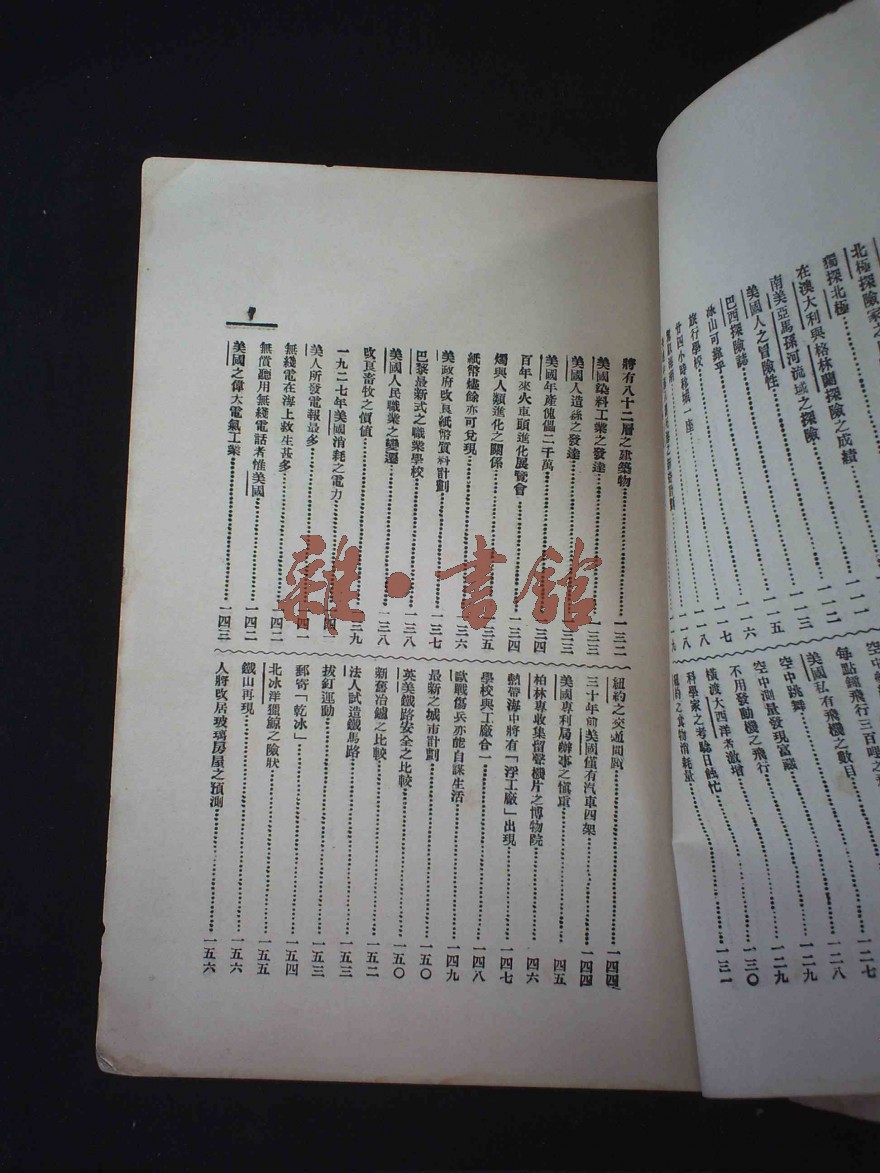 北極探險家之
獨探北極
在澳大利與格林蘭探險之成績 一一一
南美亞馬孫河流域之探險 一一二
美國人之冒險性 一一三
巴西探險誌 一一六
冰山可靠乎 一一七
旅行學校 一一八
廿四小時移城一座 一一八
空中
每點鐘飛行三百哩之
美國私有飛機之數目 一二七
空中跳舞 一二八
空中測量發現富礦 一二九
不用發動機之飛行 一二九
橫渡大西洋者激增 一三〇
科學家之考驗日蝕忙 一三一
將有八十二層之建築物 一三二
美國染料工業之發達 一三三
美國人造絲之發達 一三三
美國年產傀儡二千萬 一三四
百年來火車頭進化展覽會 一三四
燭與人類進化之關係 一三五
紙幣燼餘亦可兌現 一三六
美政府改良紙幣質料計劃 一三七
巴黎最新式之職業學校 一三八
美國人民職業之變遷 一三八
改良畜牧之價值 一三九
一九二七年美國消耗之電力 一四一
美人所發電報最多 一四一
無綫電在海上救生甚多 一四二
無償聽用無綫電話者惟美國 一四二
美國之偉大電氣工業 一四三
紐約之交通問題 一四四
三十年前美國僅有汽車四架 一四四
美國專利局辦事之慎重 一四五
柏林專收集留聲機片之博物院 一四六
熱帶海中將有「浮工廠」出現 一四七
學校與工廠合一 一四八
歐戰傷兵亦能自謀生活 一四九
最新之城市計劃 一五〇
英美鐵路安全之比較 一五〇
新舊冶鑪之比較 一五二
法人試造鐵馬路 一五三
拔釘運動 一五三
郵寄「乾冰」 一五四
北冰洋獵鯨之險狀 一五五
鐵山再現 一五六
人將改居玻璃房屋之預測 一五六
雜·書館